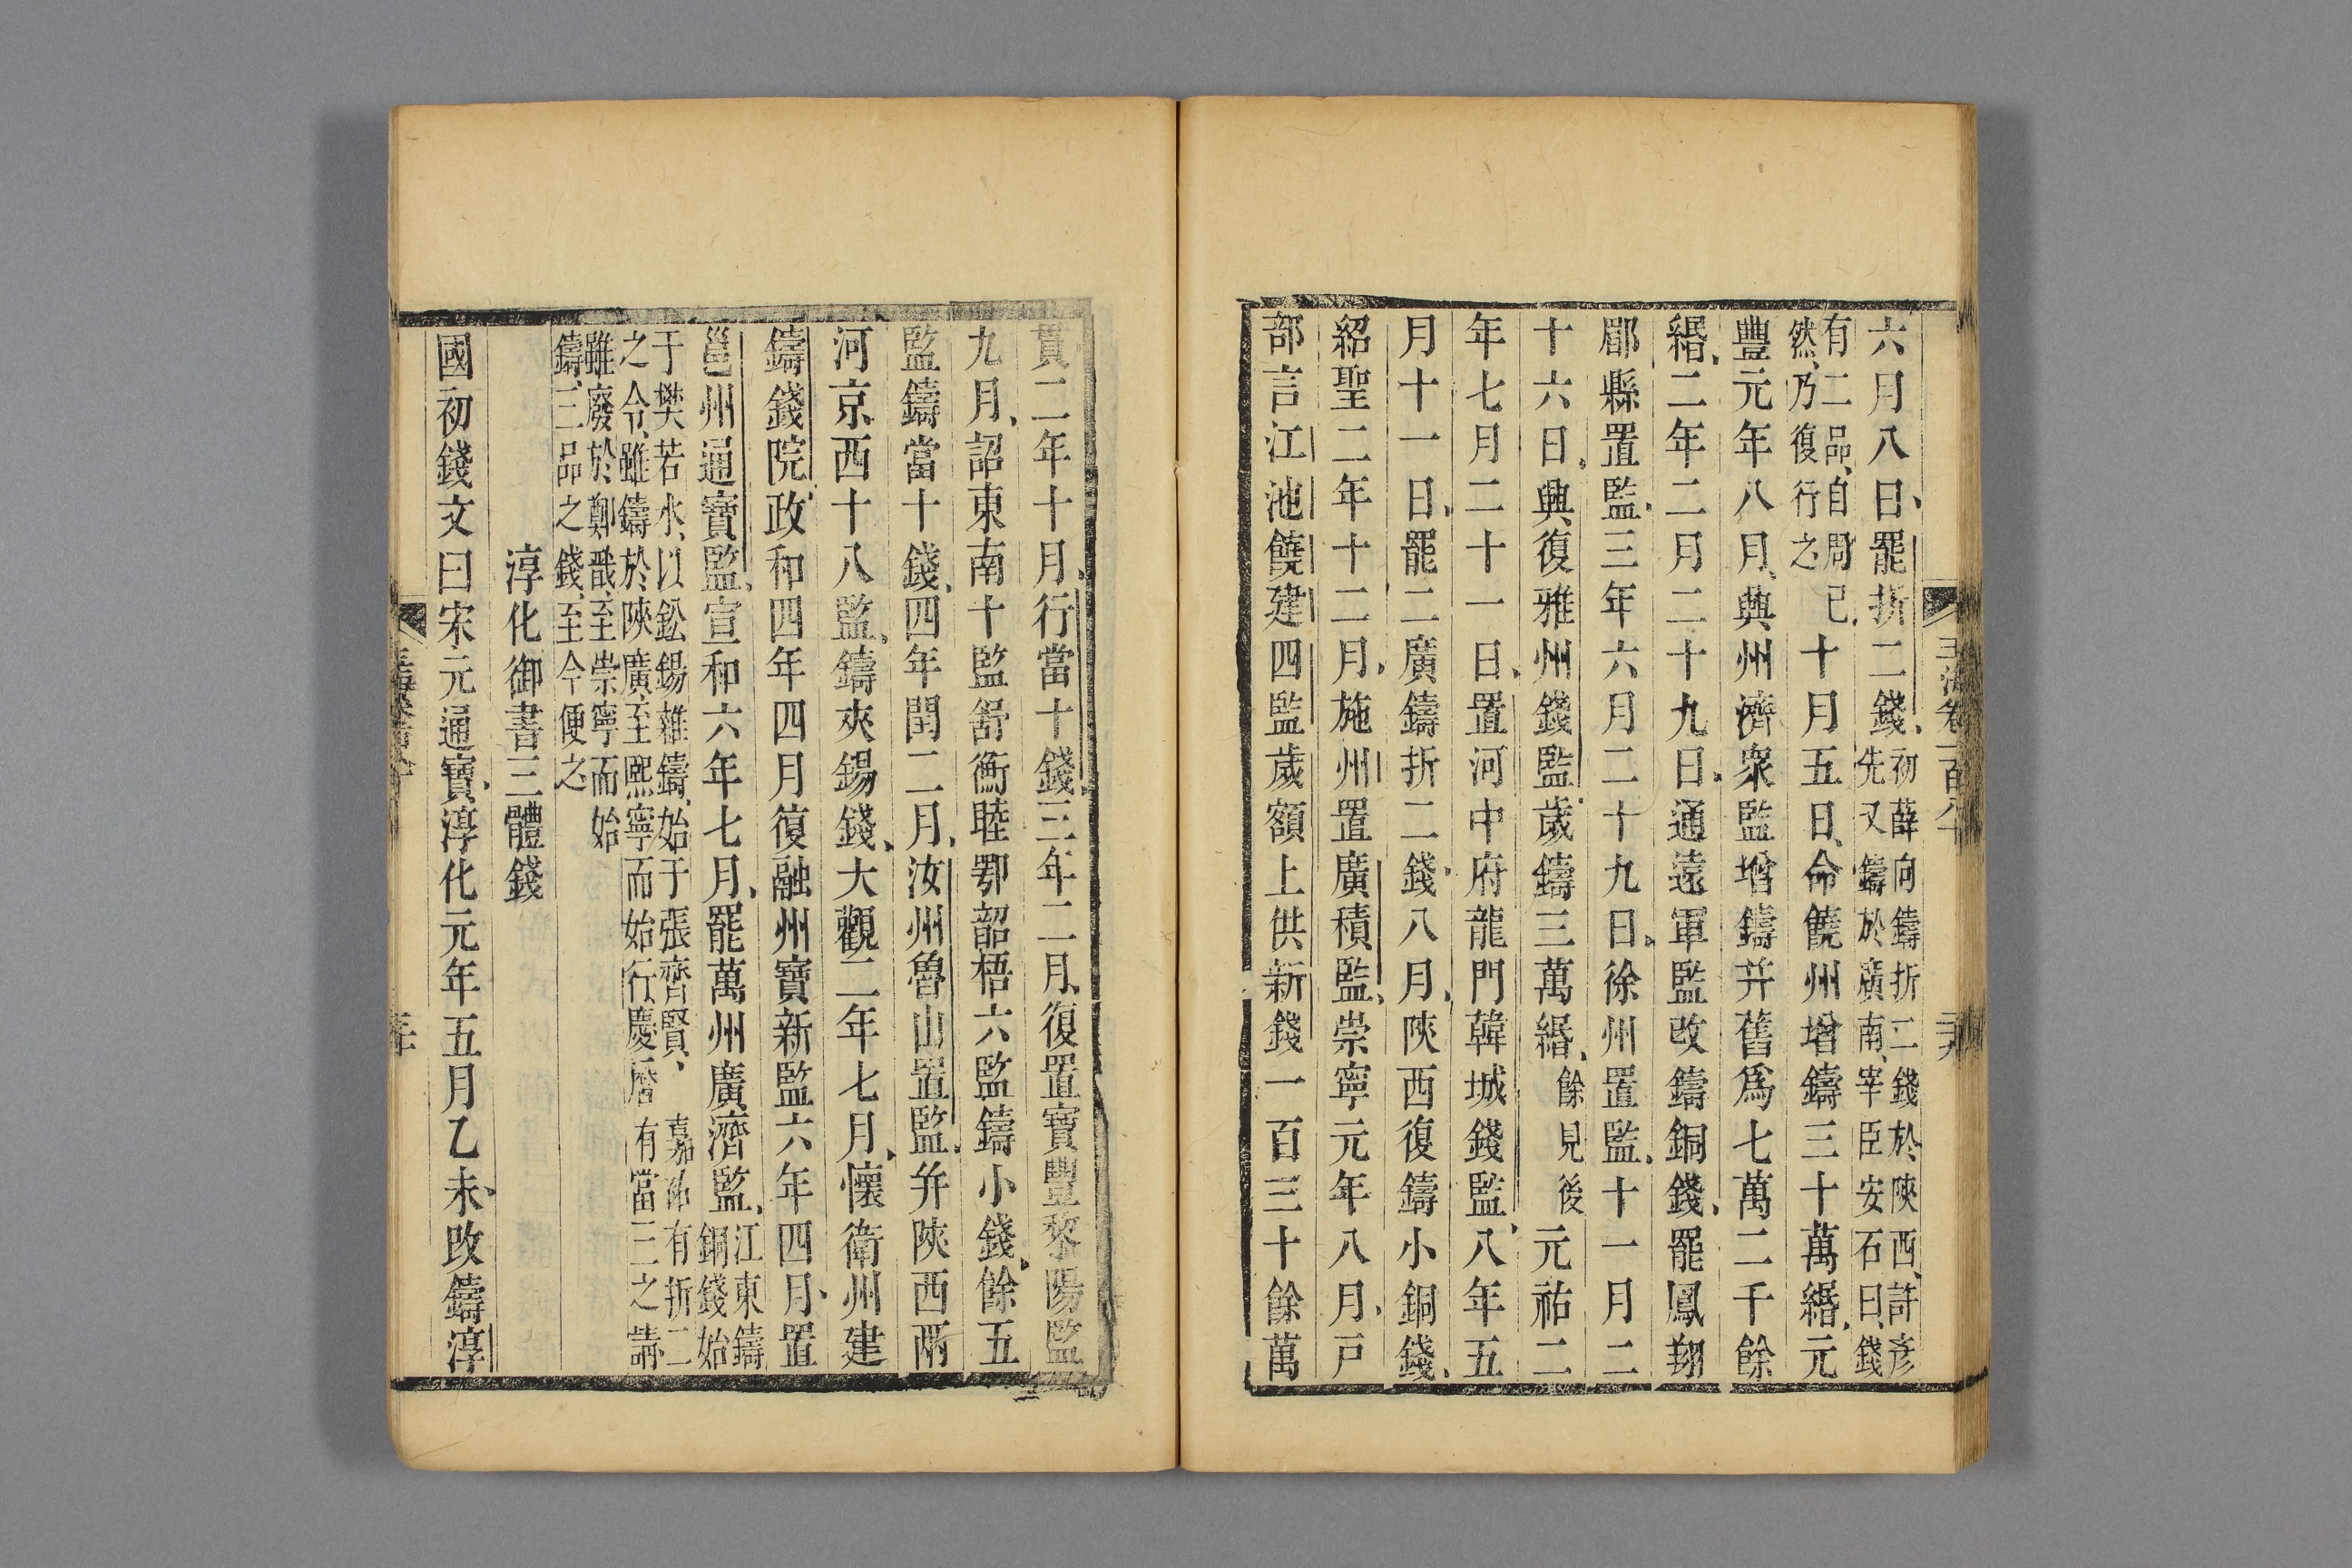 六月八日罷折二錢初薛向鑄折二錢於陝西許彥
先又鑄於廣南宰臣安石曰錢
有二品自周已
然乃復行之十月五日命饒州增鑄三十萬緡元
豐元年八月興州濟衆監增鑄并舊爲七萬二千餘
緡二年二月二十九日通遠軍監改鑄銅錢罷鳳翔
郿縣置監三年六月二十九日徐州置監十一月二
十六日興復雅州錢監歲鑄三萬緡餘見後元祐二
年七月二十一日置河中府龍門韓城錢監八年五
月十一日罷二廣鑄折二錢八月陝西復鑄小銅錢
紹聖二年十二月施州置廣積監崇寧元年八月戸
部言江池饒建四監歲額上供新錢一百三十餘萬
玉海卷一百八十
貫二年十月行當十錢三年二月復置寶豐黎陽監
九月詔東南十監舒衡睦鄂韶梧六監鑄小錢餘五
監鑄當十錢四年閏二月汝州魯山置監并陝西兩
河京西十八監鑄夾錫錢大觀二年七月懷衛州建
鑄錢院政和四年四月復融州寶新監六年四月置
邕州通寶監宣和六年七月罷萬州廣濟監江東鑄
銅錢始
于樊若水以鈆錫雜鑄始于張齊賢嘉祐有折二
之令雖鑄於陝廣至熙寧而始行慶曆有當三之請
雖廢於鄭戩至崇寧而始
鑄三品之錢至今便之
淳化御書三體錢
國初錢文曰宋元通寶淳化元年五月乙未改鑄淳